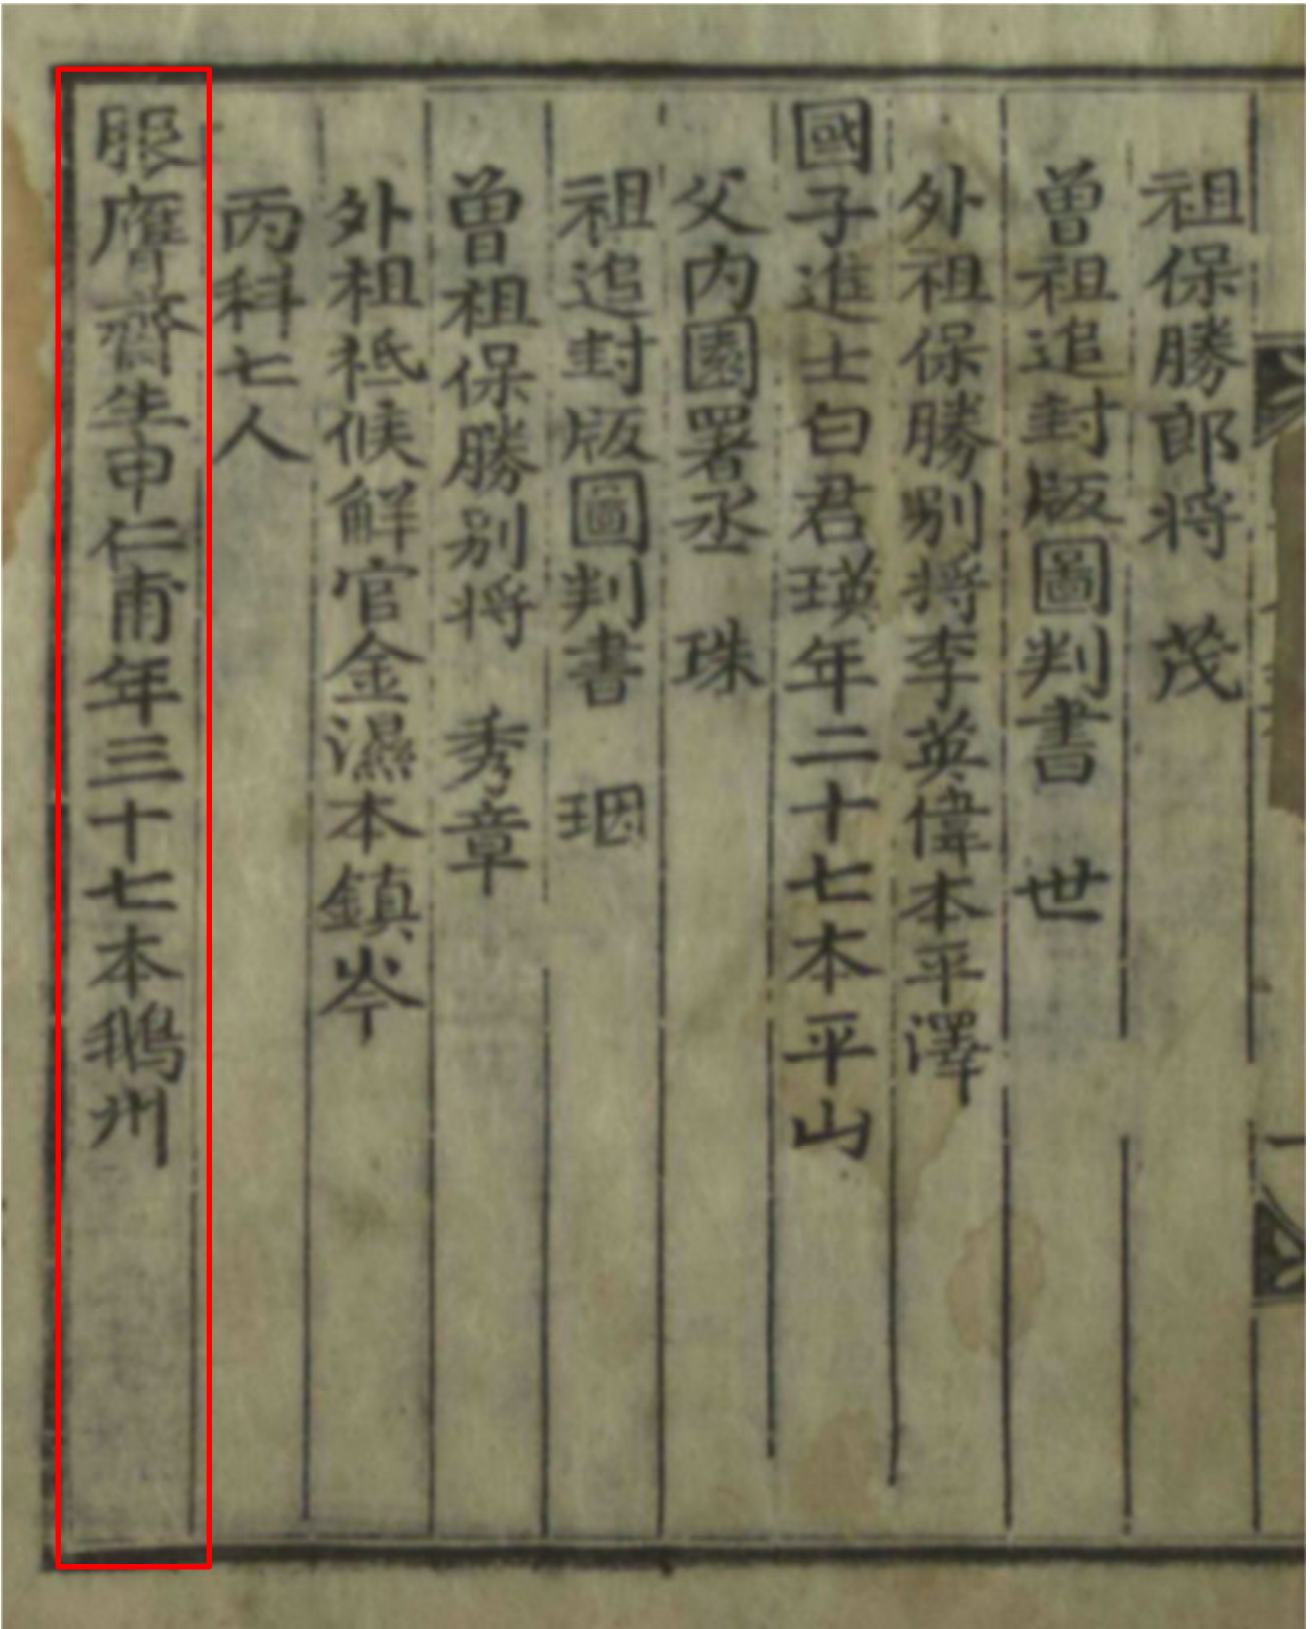 祖保勝郎将 茂
曽祖追封版圖判書 世
外祖保勝別将李英偉本平澤
國子進士白君瑛年二十七本平山
父内園署丞 珠
祖追封版圖判書 珚
曽祖保勝別将 秀章
外祖祗候鮮官金濕本鎮岑
丙科七人
服膺齋生申仁甫年三十七本鵝州